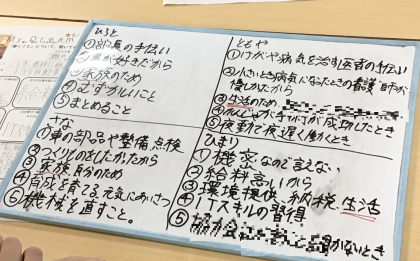 ひろと
①部長の手伝い
②車が好きだから
③家族のため
④むずかしいこと
⑤まとめること
ともや
①けがや病気を治す医者の手伝い
②小さいとき病気になったときの看護師が
優しかったから
③生活のため
④かんじゃの手術が成功したとき
⑤夜勤で夜遅く働くとき
さな
①車の部品や整備点検
②つくりものをしたかったから
③家族、自分のため
④育成を育てる元気にあいさつ
⑥機械を直すこと。
ひまり
①機密なので言えない
②給料高いから
③環境提供 納税 生活
④ITスキルの習得
⑤ かないとき